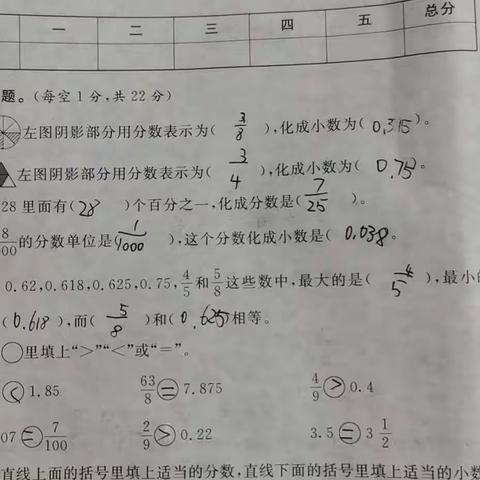 一 二 三 四 五 总分
题。(每空1分,共22分)
左图阴影部分用分数表示为( 3/8 ),化成小数为( 0.315 )。
左图阴影部分用分数表示为( 3/4 ),化成小数为( 0.75 )。
28里面有( 28 )个百分之一,化成分数是( 7/25 )。
8/00的分数单位是( 1/1000 ),这个分数化成小数是( 0.038 。
0.62,0.618,0.625,0.75,4/5和5/8这些数中,最大的是( 4/5 ),最小的
( 0.618 ),而( 5/8 )和( 0.625 )相等。
○里填上“>”“<”或“=”。
< 1.85 63/8 = 7.875 4/9 > 0.4
07 = 7/100 2/9 > 0.22 3.5 = 3 1/2
直线上面的括号里填上适当的分数,直线下面的括号里填上适当的小数